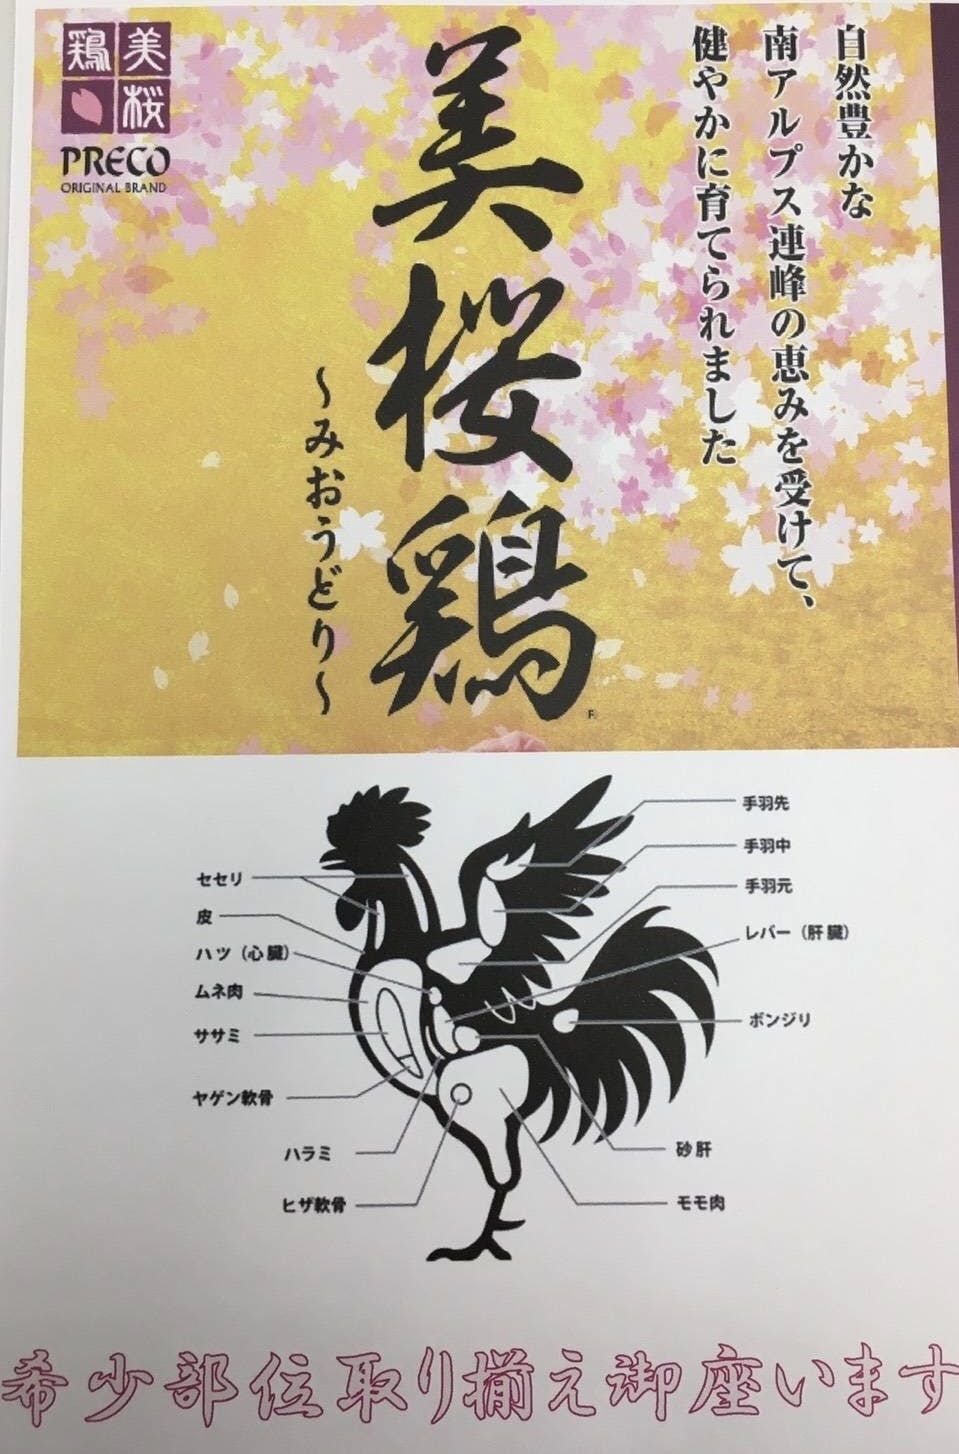 自然豊かな
南アルプス連峰の恵みを受けて、
健やかに育てられました
美桜鶏
～みおうどり～
美桜鶏
PRECO
ORIGINAL BRAND
手羽先
手羽中
手羽元
レバー（肝臓）
ボンジリ
砂肝
モモ肉
セセリ
皮
ハツ（心臓）
ムネ肉
ササミ
ヤゲン軟骨
ハラミ
ヒザ軟骨
希少部位取り揃え御座います